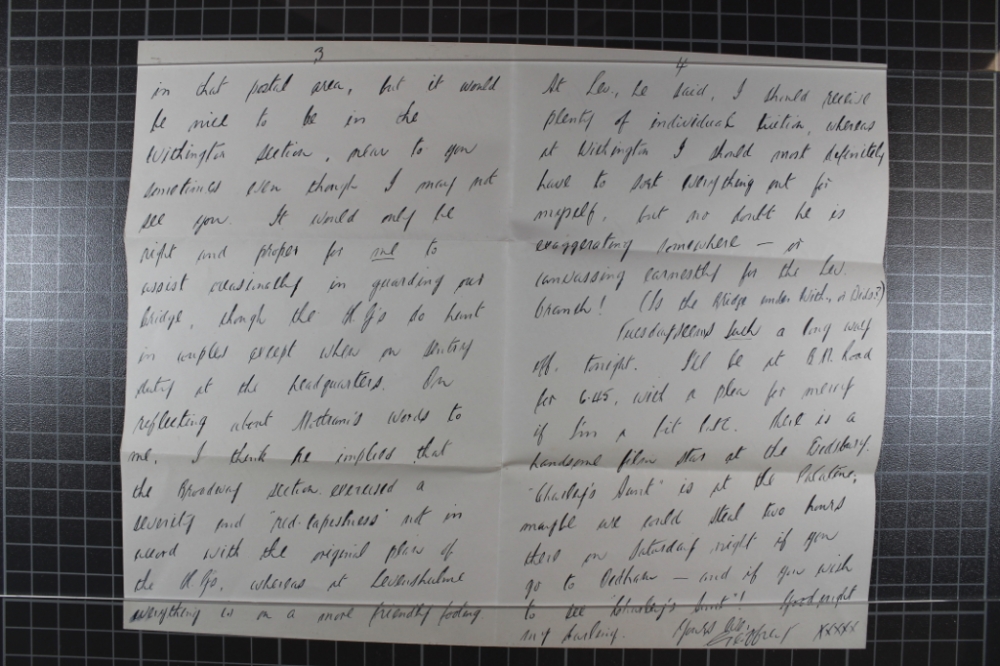 3
in that postal area, but it would
be nice to be in the
Withington section, near to you
sometimes even though I may not
see you. It would only be
right and proper for me to
assist occasionally in guarding our
bridge, though the H.G's do hunt
in couples except when on sentry
duty at the headquarters. On
reflecting about Mottram's words to
me, I think he implies that
the Broadway section exercised a
severity and "red-tapishness" not in
accord with the original plan of
the H.Gs, whereas at Levenshulme
everything is on a more friendly footing.
4
At Lev., he said, I should receive
plenty of individual tuition, whereas
at Withington I should most definitely
have to sort everything out for
myself, but no doubt he is
exaggerating somewhere — or
canvassing earnestly for the Lev.
branch! (Is the Bridge under With. or Dids?)
Tuesday seems such a long way
off, tonight. I'll be at Road
for 6.45, with a plea for mercy
if I'm a bit late. There is a
handsome film star at the Didsbury.
"Charley's Aunt" is at the Palatine,
maybe we could steal two hours
there on Saturday night if you
go to Oldham — and if you wish
to see "Charley's Aunt"! Goodnight
my darling. Yours Geoffrey xxxxx